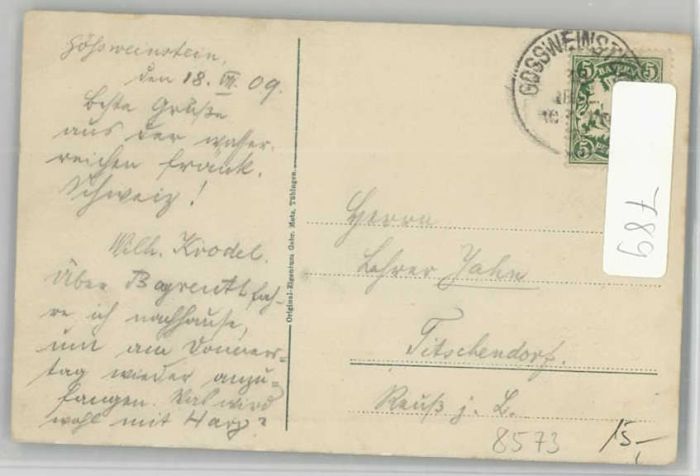 Gößweinstein,
den 18. VII. 09.
Beste Grüße
aus der wasser-
reichen fränk.
Schweiz!
Wilh. Krodel.
Über Bayreuth fah-
re ich nachhause,
um am Donners-
tag wieder anzu-
fangen. Was wird
wohl mit Harz?
Original-Eigentum Gebr. Metz, Tübingen.
GÖSSWEINST
5 BAYERN 5
5
789
Herrn
Lehrer Jahn
Titschendorf.
Reuß j. L.
8573
15,-